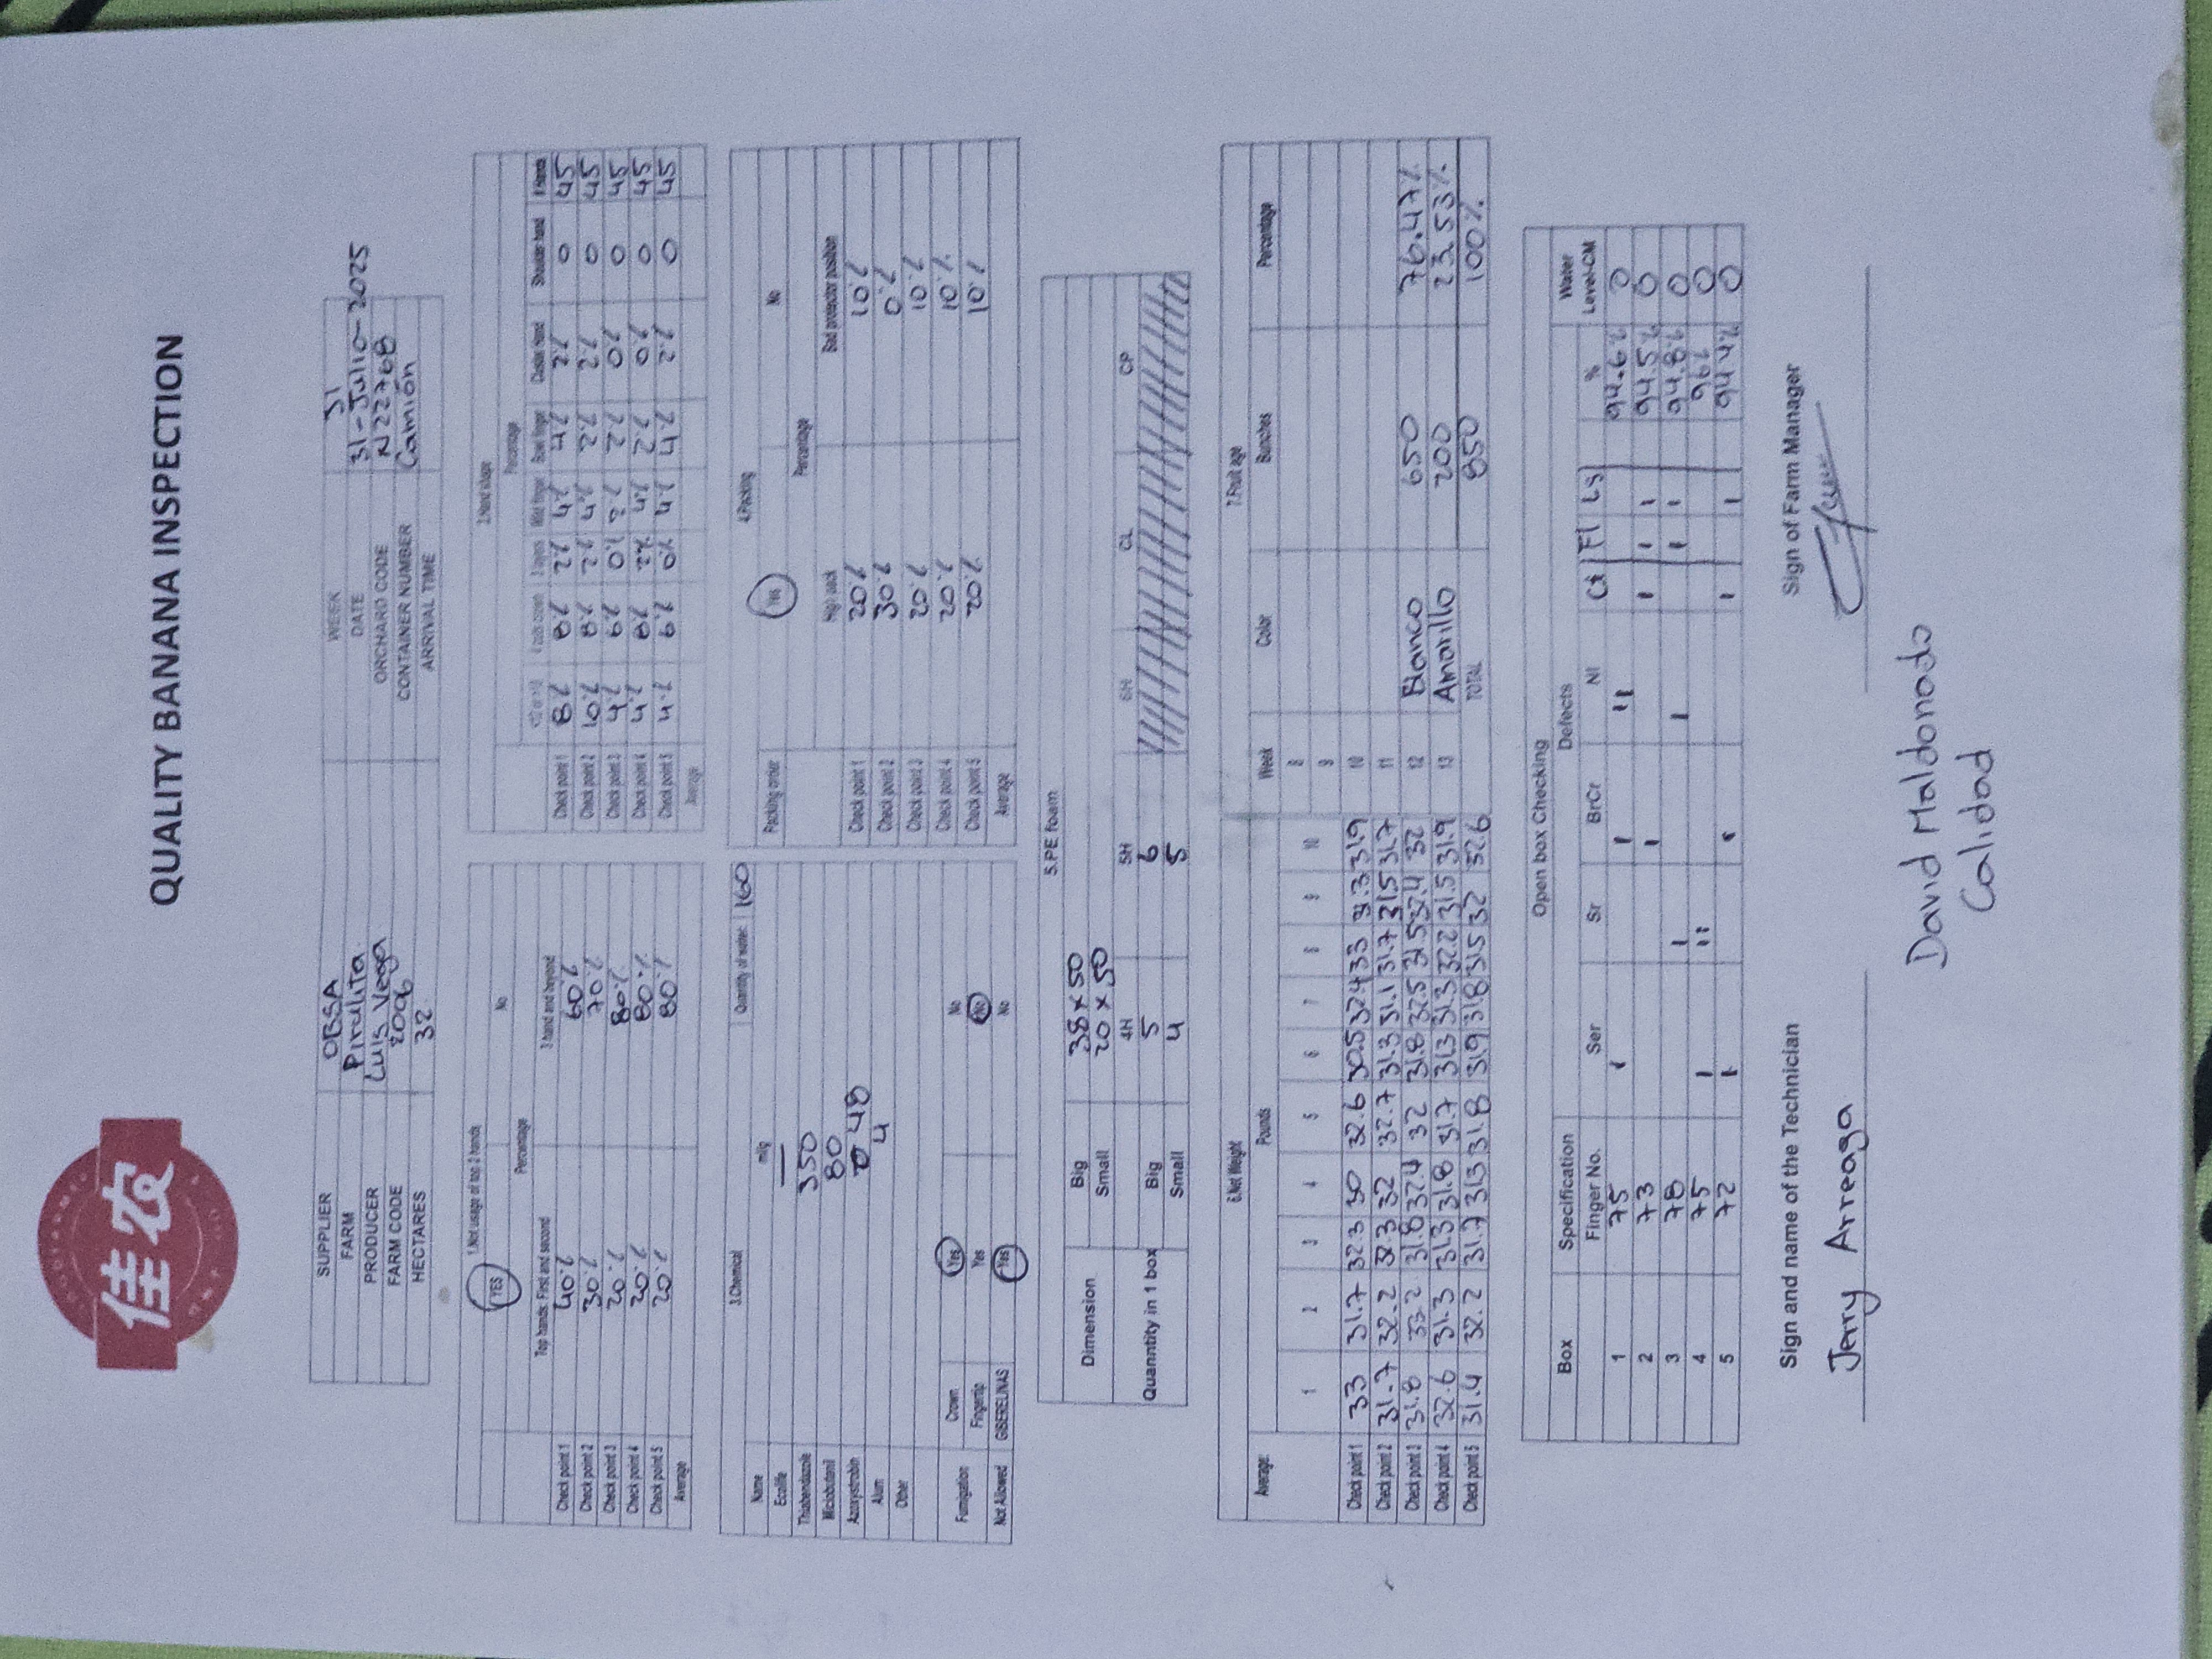 佳农
QUALITY BANANA INSPECTION
SUPPLIER OBSA WEEK 31
FARM Pirulita DATE 31-Julio-2025
PRODUCER Luis Vega ORCHARD CODE N22768
FARM CODE 2006 CONTAINER NUMBER Camión
HECTARES 32 ARRIVAL TIME
1.Not usage of top 2 hands
YES No
Percentage
Top hands: First and second 3 hand and beyond
Check point 1 40% 60%
Check point 2 30% 70%
Check point 3 20% 80%
Check point 4 20% 80%
Check point 5 20% 80%
Average
2.Hand shape
Percentage
4 cuts crown 2 layers Wild finger Bowl finger Cluster Hand Shoulder hand # Hands
Check point 1 8% 8% 2% 4% 4% 2% 0 45
Check point 2 10% 8% 2% 4% 2% 2% 0 45
Check point 3 4% 6% 0% 2% 2% 0% 0 45
Check point 4 4% 8% 2% 4% 2% 0% 0 45
Check point 5 4% 6% 0% 4% 4% 2% 0 45
Average
3.Chemical Quantity of water: 160
Name ml/g
Ecolife —
Thiabendazole 350
Miclobutanil 80
Azoxystrobin 48
Alum 4
Other
Fumigation Crown Yes No
Fingertip Yes No
Not Allowed GIBERELINAS Yes No
4.Packing
Packing order Yes No
Percentage
High pack Bad protector position
Check point 1 20% 10%
Check point 2 30% 0%
Check point 3 20% 10%
Check point 4 20% 10%
Check point 5 20% 10%
Average
5.PE foam
Dimension Big 38 x 50
Small 20 x 50
4H 5H 6H CL CP
Quanntity in 1 box Big 5 6
Small 4 5
6.Net Weight
Average: Pounds
1 2 3 4 5 6 7 8 9 10
Check point 1 33 31.7 32.3 30 32.6 30.5 32.4 33 31.3 31.9
Check point 2 31.7 32.2 32.3 32 32.7 31.3 31.1 31.7 31.5 31.7
Check point 3 31.8 33.2 31.8 32.4 32 31.8 32.5 31.5 32.4 32
Check point 4 32.6 31.3 31.3 31.8 31.7 31.3 31.3 32.2 31.5 31.9
Check point 5 31.4 32.2 31.7 31.3 31.8 31.9 31.8 31.5 32 32.6
7.Fruit age
Week Color Bunches Percentage
8
9
10
11
12 Blanco 650 76.47%
13 Amarillo 200 23.53%
TOTAL 850 100%
Open box Checking
Box Specification Defects Water
Finger No. Ser Sr BrCr NI Ct Fl Ls % Level-CM
1 75 I I II 94.6% 0
2 73 I I I I 94.5% 0
3 78 I I I I 94.8% 0
4 75 I II 96% 0
5 72 I I I I 94.4% 0
Sign and name of the Technician Sign of Farm Manager
Jerry Arreaga
David Maldonado
Calidad